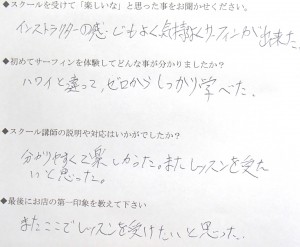 ◆スクールを受けて「楽しいな」と思った事をお聞かせください。
インストラクターの感じもよく気持ちよくサーフィンが出来た。
◆初めてサーフィンを体験してどんな事が分かりましたか?
ハワイと違って、ゼロからしっかり学べた。
◆スクール講師の説明や対応はいかがでしたか?
分かりやすくて楽しかった。またレッスンを受た
いと思った。
◆最後にお店の第一印象を教えて下さい
またここでレッスンを受けたいと思った。